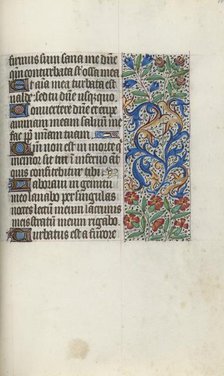 firmus sum sana me dñe
qm conturbata sũt ossa mea
Et aĩa mea turbata est
valde: sed tu dñe usquequo
Convertere dñe et eripe
animam meam: salvum me
fac pp̃ miãm tuam
Qm̃ non est in morte q̃
memor sit tui: in inferno aũt
quis confitebitur tibi
Laboravi in gemitu
meo: lavabo per singulas
noctes lectũ meum: lacrimis
meis stratũ meum rigabo
Turbatus est a furore